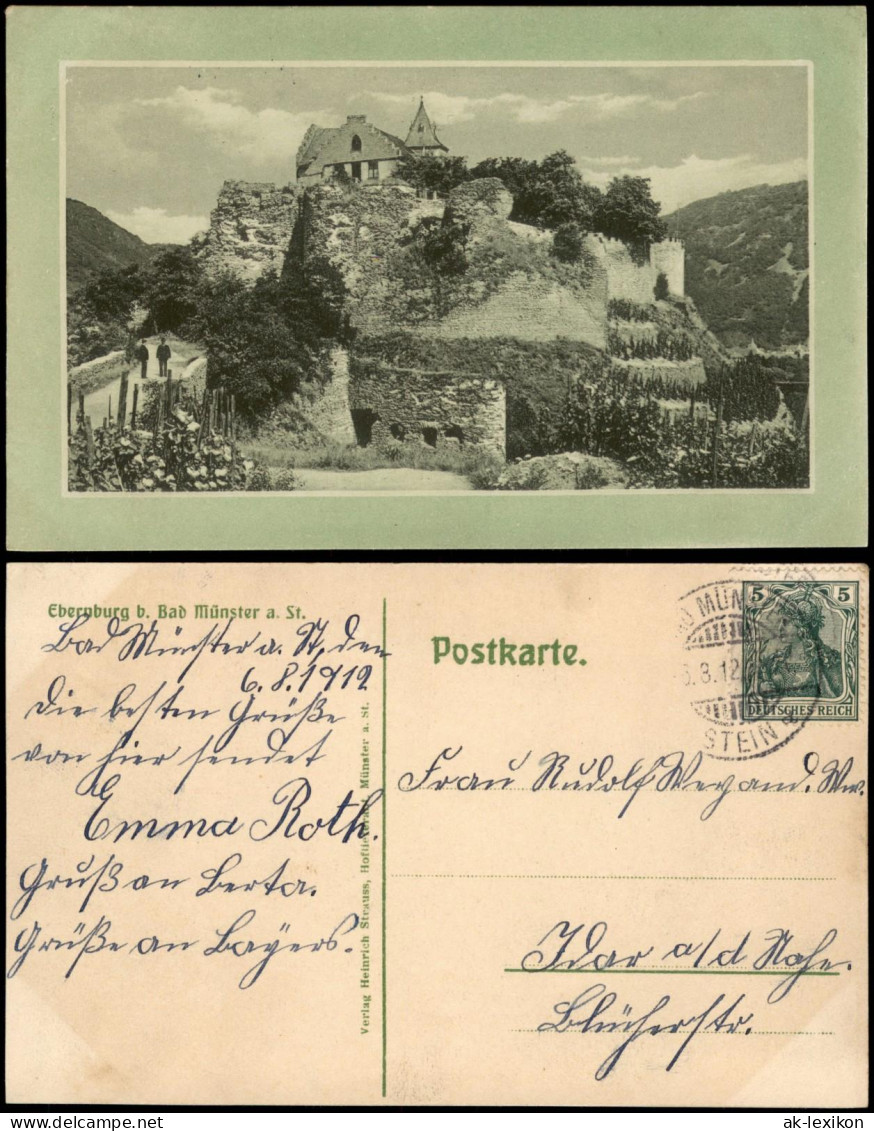 Ebernburg b. Bad Münster a. St.
Bad Münster a. St, den
6.8.1912
Die besten Grüße
von hier sendet
Emma Roth.
Gruß an Berta.
Grüße an Bayers.
Verlag Heinrich Strauss, Münster a. St.
Postkarte.
5 5
DEUTSCHES REICH
MÜN
8.12
STEIN
Frau Rudolf Weyand. Ww.
Idar a/d Nahe.
Blücherstr.
ak-lexikon